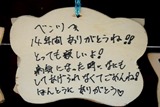 ベンツへ
14年間ありがとうね!!
とっても楽しいよ!
病気になった時になにも
してあげられなくてごめんね!
ほんとうにありがとう♡